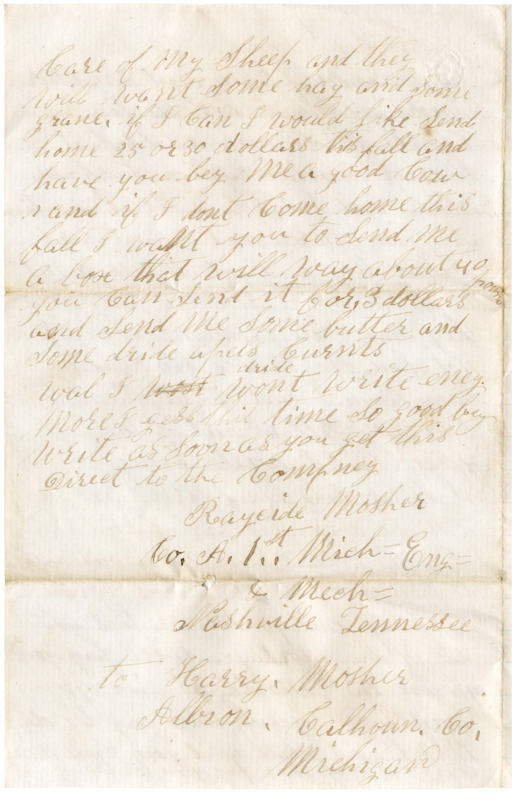 Care of My Sheep and they
will want some hay and some
grane. if I Can I would like send
home 25 or 30 dollars this fall and
have you bey Me a good Cow
and if I dont Come home this
fall I want you to send me
a box that will way about 40 pounds
you Can send it for, 3 dollars
and send Me some butter and
some dride apels Curnts
dride
wal I wont write eney
More I gess this time so good bey
write as soon as you get this
Direct to the Compney
Mosher
Co. A. 1st. Mich= Eng=
& Mech=
Nashville Tennessee
to Harry. Mosher
Albion. Calhoun. Co.
Michigan